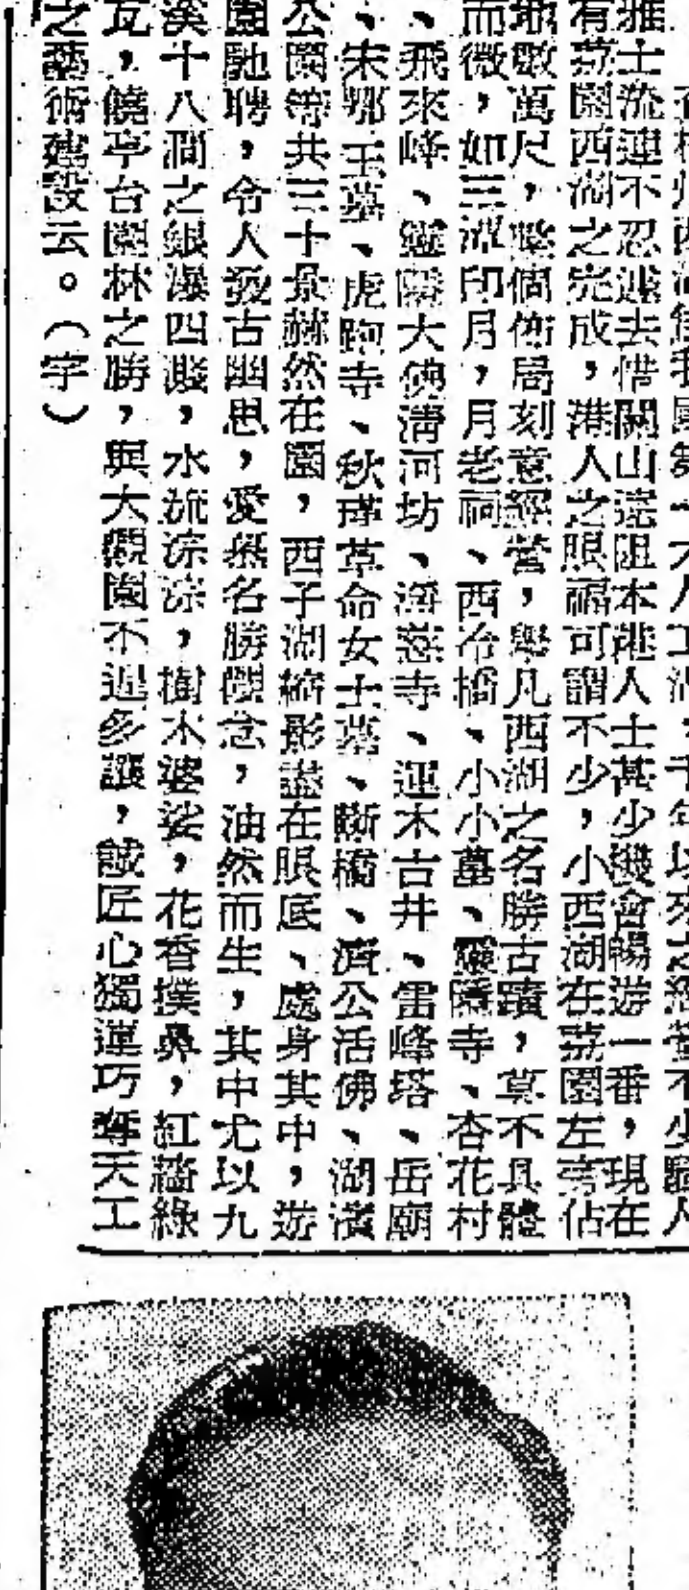 杭州西湖為我國第一大人工湖，千年以來之經營不少騷人
雅士流連不忍遽去惜關山遠阻本港人士甚少機會暢游一番，現在
有荔園西湖之完成，港人之眼福可謂不少，小西湖在荔園左旁佔
地數萬尺，整個佈局刻意經營，舉凡西湖之名勝古蹟，莫不具體
而微，如三潭印月，月老祠、西冷橋、小小墓、靈隱寺、杏花村
、飛來峰、靈隱大佛清河坊、淨慈寺、運木古井、雷峰塔、岳廟
、宋鄂王墓、虎跑寺、秋瑾革命女士墓、斷橋、濟公活佛、湖濱
公園等共三十景赫然在園，西子湖縮影盡在眼底、處身其中，遊
園馳聘，令人發古幽思，愛慕名勝觀念，油然而生，其中尤以九
溪十八澗之銀瀑四濺，水流淙淙，樹木婆娑，花香撲鼻，紅牆綠
瓦，饒亭台園林之勝，與大觀園不遑多讓，誠匠心獨運巧奪天工
之藝術建設云。（字）